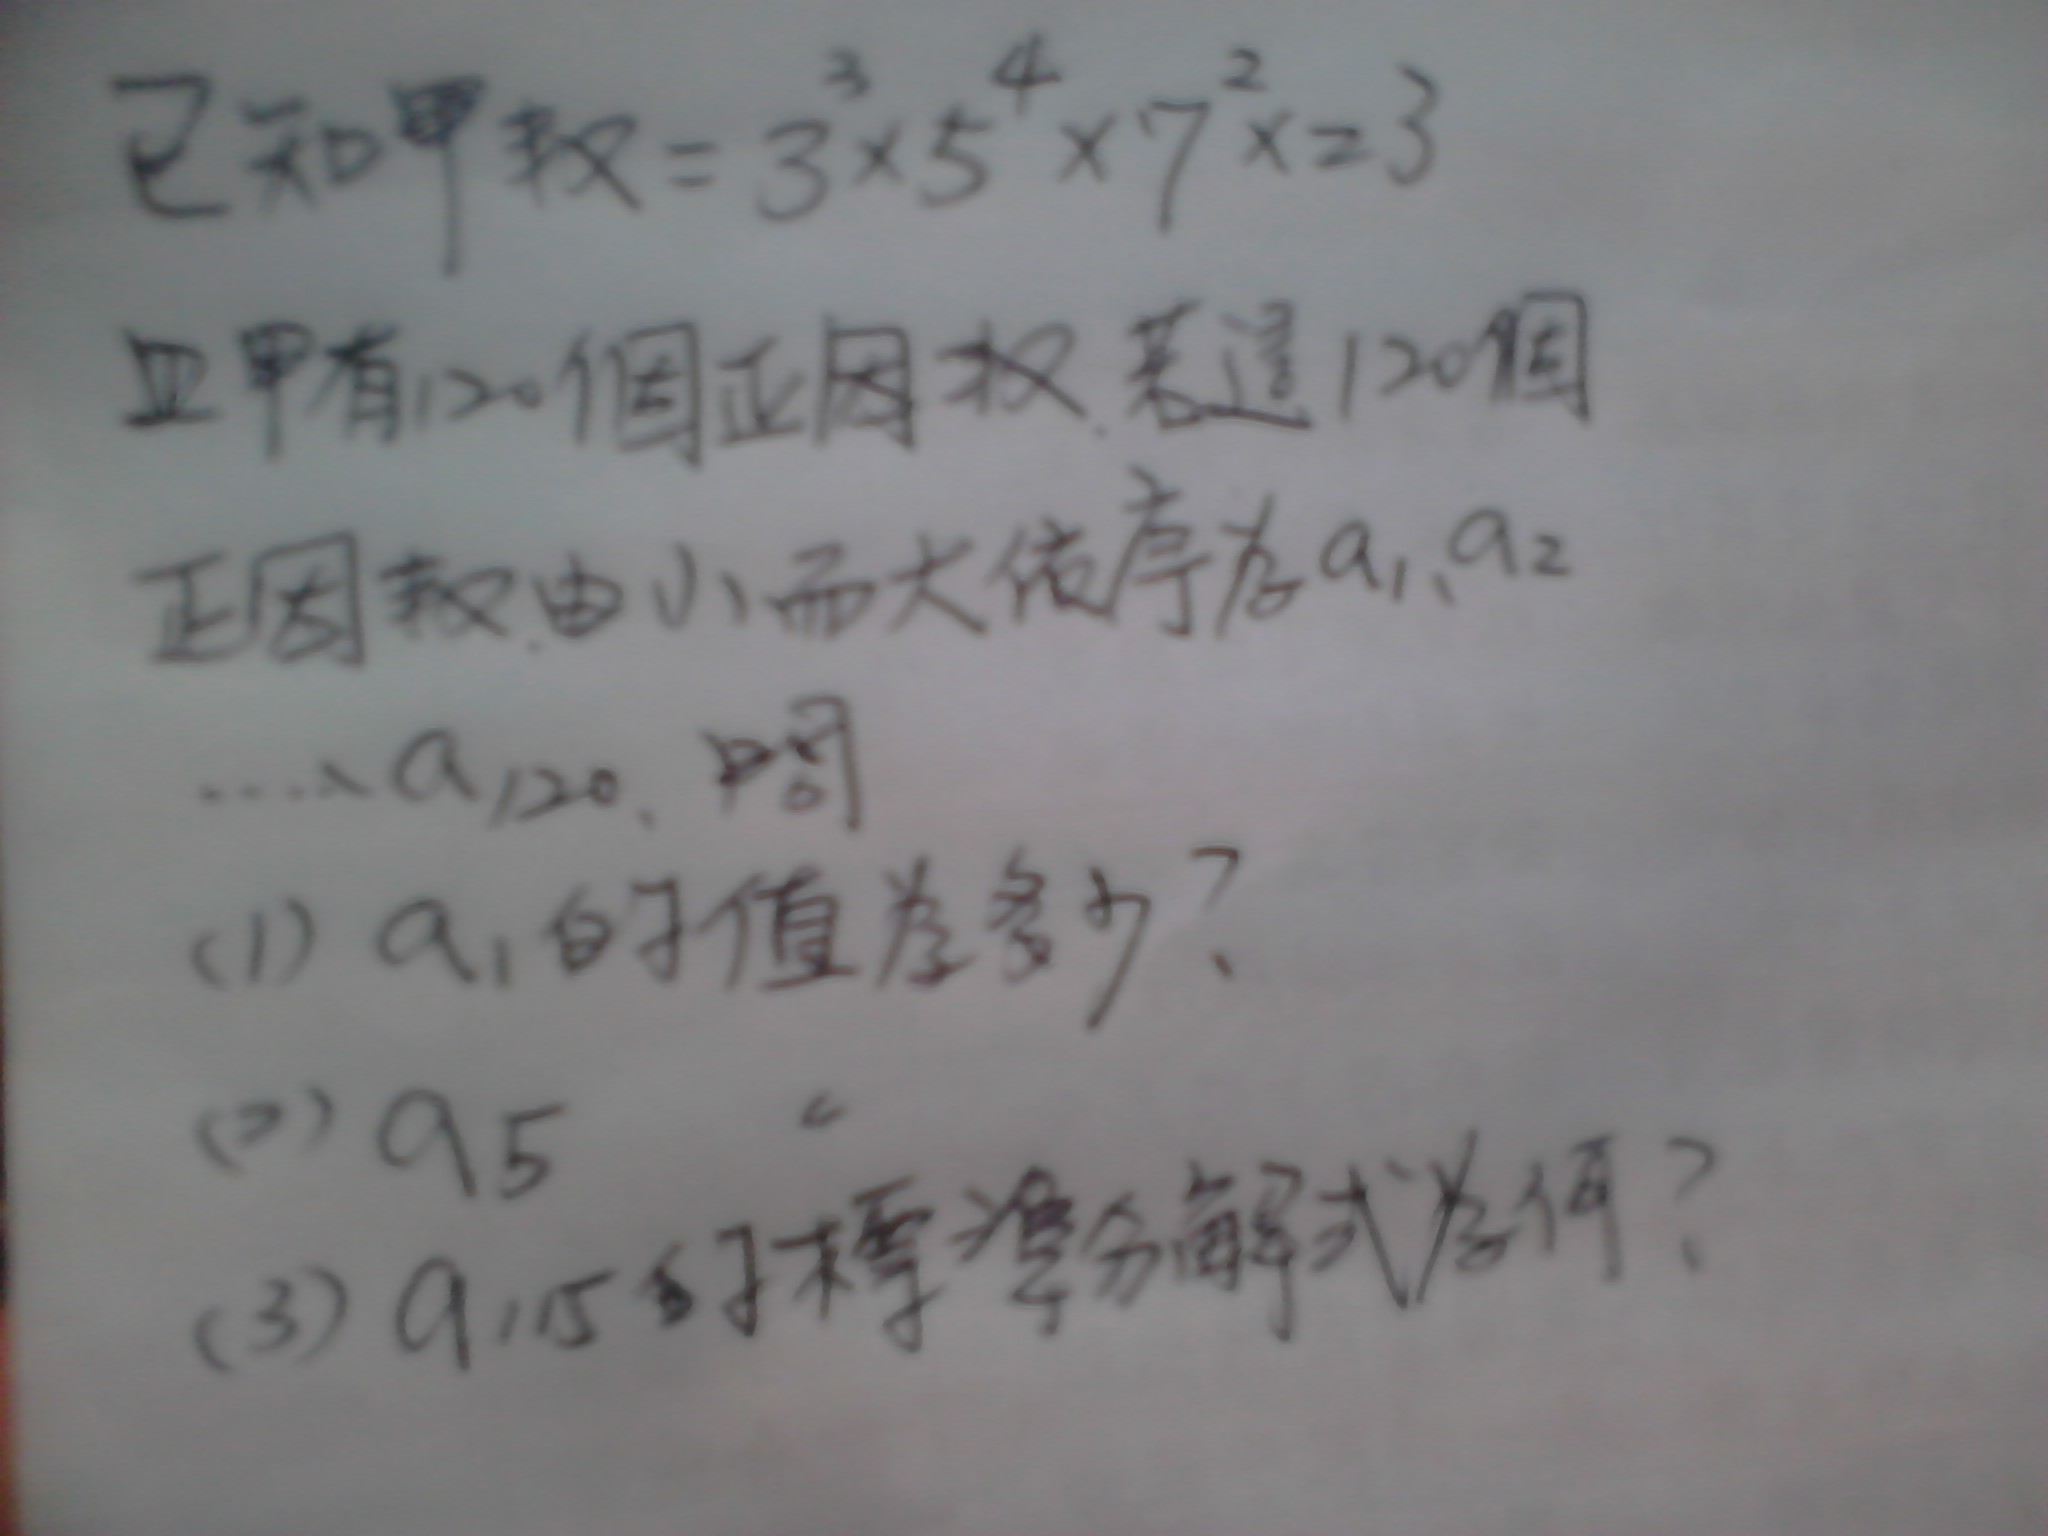 已知甲数=3³×5⁴×7²×=3
且甲有120個正因权.若這120個
正因数.由小而大依序为a₁、a₂
....、a₁₂₀、問
(1) a₁的值为多少?
(2) a₅ 〃
(3) a₁₁₅的標準分解式为何?